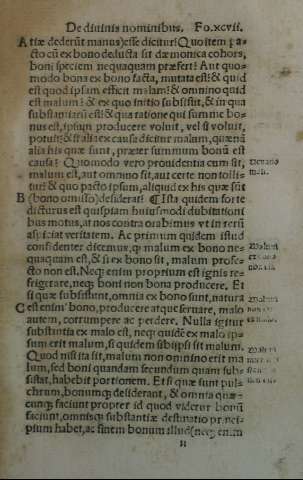 De diuinis nominibus. Fo.xcvii.
A tiæ dederūt manus) esse dicitur? Quo item pa-
cto cū ex bono deducta sit dæmonica cohors,
boni speciem nequaquam præfert? Aut quo-
modo bona ex bono facta, mutata est? & quid
est quod ipsum efficit malum? & omnino quid
est malum? & ex quo initio subsistit, & in qua
substantia est? & qua ratione qui summe bo-
nus est, ipsum producere voluit, vel si voluit,
potuit? & si alia ex causa dicitur malum, quænā
alia his quæ sunt, præter summum bonū est
causa? Quomodo vero prouidentia cum sit,
malum est, aut omnino sit, aut certe non tolli-
tur? & quo pacto ipsum, aliquid ex his quæ sūt
B (bono omisso) desiderat? ¶ Ista quidem forte
dicturus est quispiam huiusmodi dubitationi
bus motus, at nos contra orabimus vt in rerū
aspiciat veritatem. Ac primum quidem istud
confidenter dicemus, q malum ex bono ne-
quaquam est, & si ex bono sit, malum profe-
cto non est. Neq; enim proprium est ignis re-
frigerare, neq; boni non bona producere. Et
si quæ subsistunt, omnia ex bono sunt, natura
C est enim bono, producere atque seruare, malo
autem, corrumpere ac perdere. Nulla igitur
substantia ex malo est, neq; quide ex malo ip-
sum erit malum, si quidem sibiipsi sit malum.
Quod nisi ita sit, malum non omnino erit ma
lum, sed boni quandam secundum quam sub-
sistat, habebit portionem. Et si quæ sunt pul-
chrum, bonumq; desiderant, & omnia quæ-
cunq; faciunt propter id quod videtur bonū
faciunt, omnisq; substantiæ destinatio princi-
pium habet, ac finem bonum illud (neq; enim